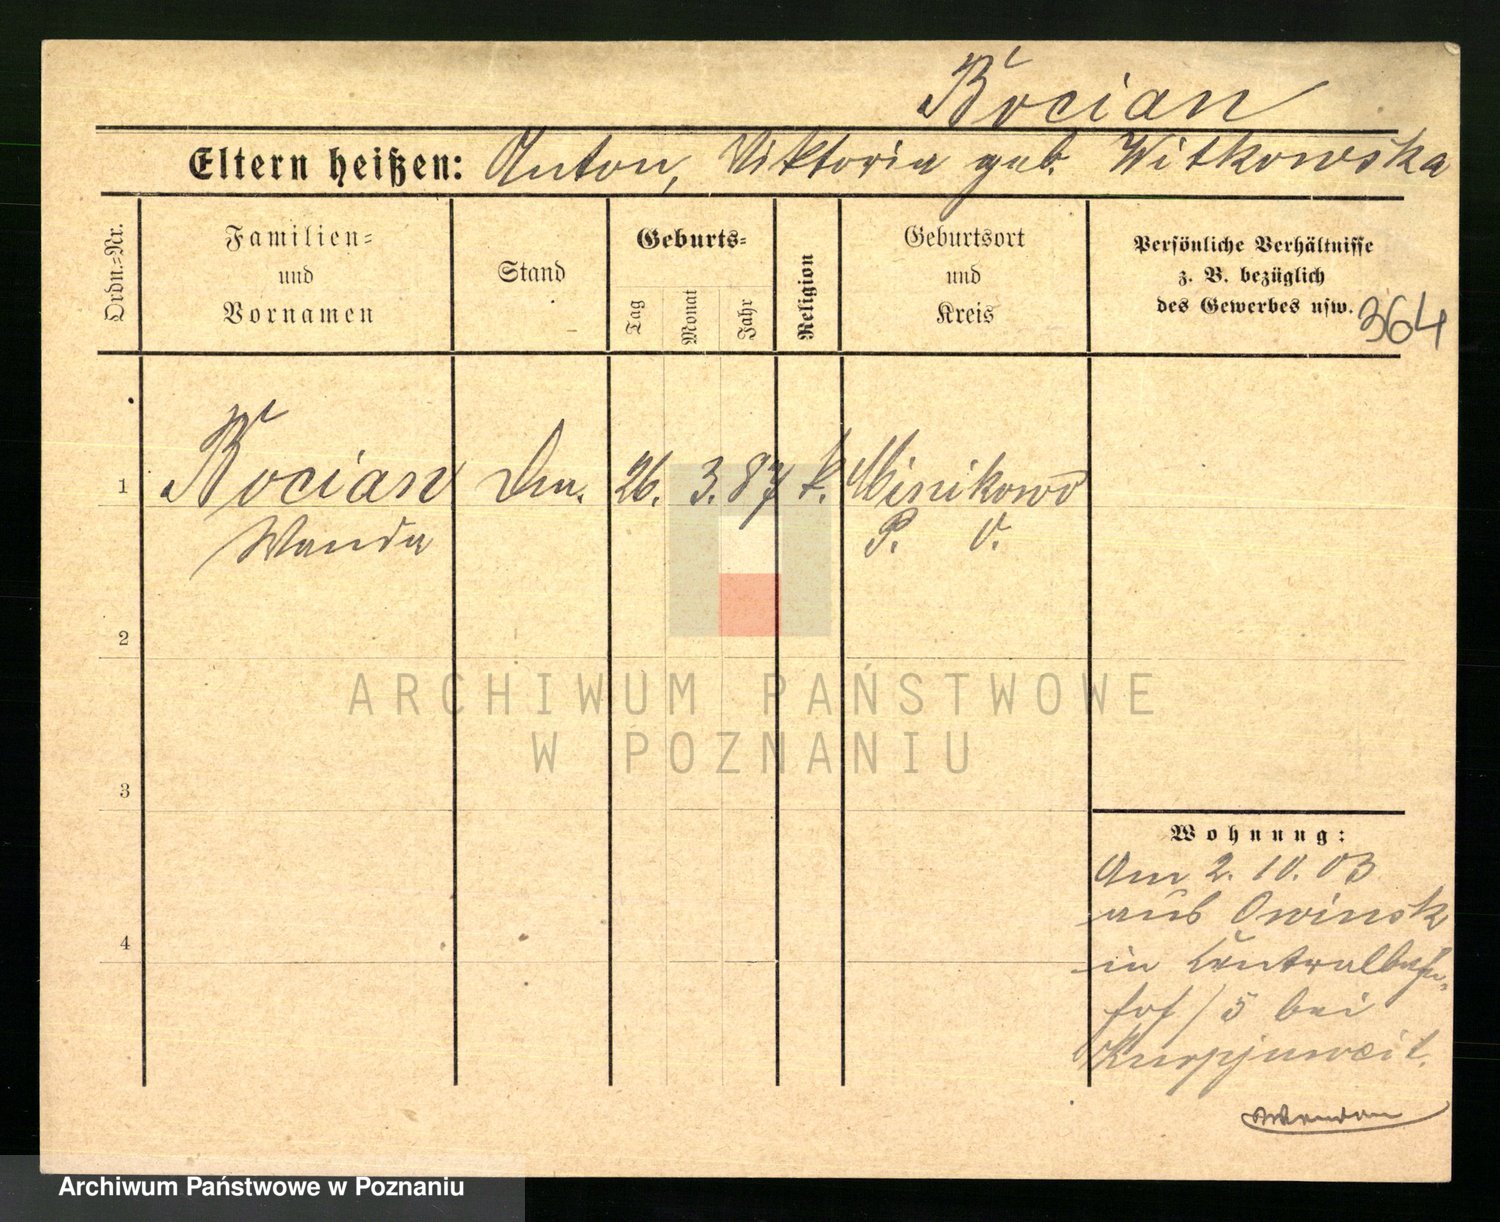 Bocian
Eltern heißen: Anton, Viktoria geb. Witkowska
Ordn.-Nr.
Familien-
und
Vornamen
Stand
Geburts-
Tag
Monat
Jahr
Religion
Geburtsort
und
Kreis
Persönliche Verhältnisse
z. B. bezüglich
des Gewerbes usw.
364
1
Bocian
26. 3. 87 k. Minikowo
Wanda
P. O.
2
ARCHIWUM PAŃSTWOWE
W POZNANIU
3
Wohnung:
Am 2. 10. 03
aus Owinsk
in Centralbahn-
hof / 5 bei
4
Archiwum Państwowe w Poznaniu